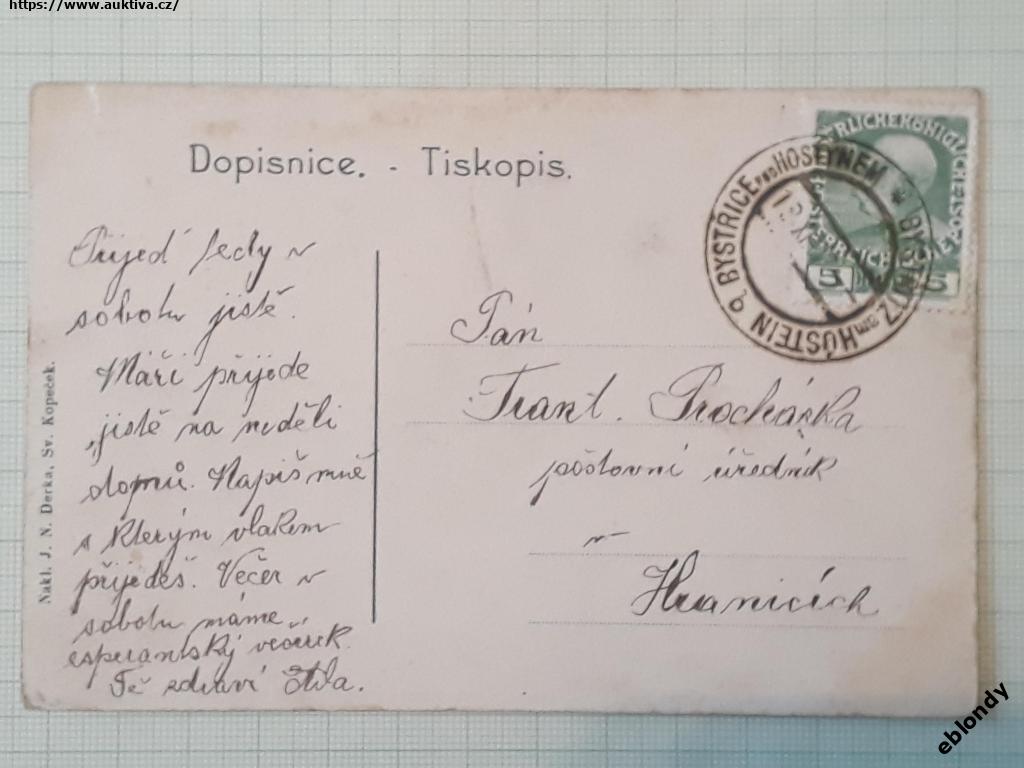 https://www.auktiva.cz/
Dopisnice. - Tiskopis.
Přijeď tedy v
sobotu jistě.
Máři přijede
jistě na neděli
domů. Napiš mně
s kterým vlakem
přijedeš. Večer v
sobotu máme
esperantský večírek
Tě zdraví
Nakl. J. N. Derka, Sv. Kopeček.
Pán
Frant. Procházka
poštovní úředník
v
Hranicích
BYSTŘICE POD HOSTÝNEM * BYSTRITZ am HOSTEIN
5 5
eblondy